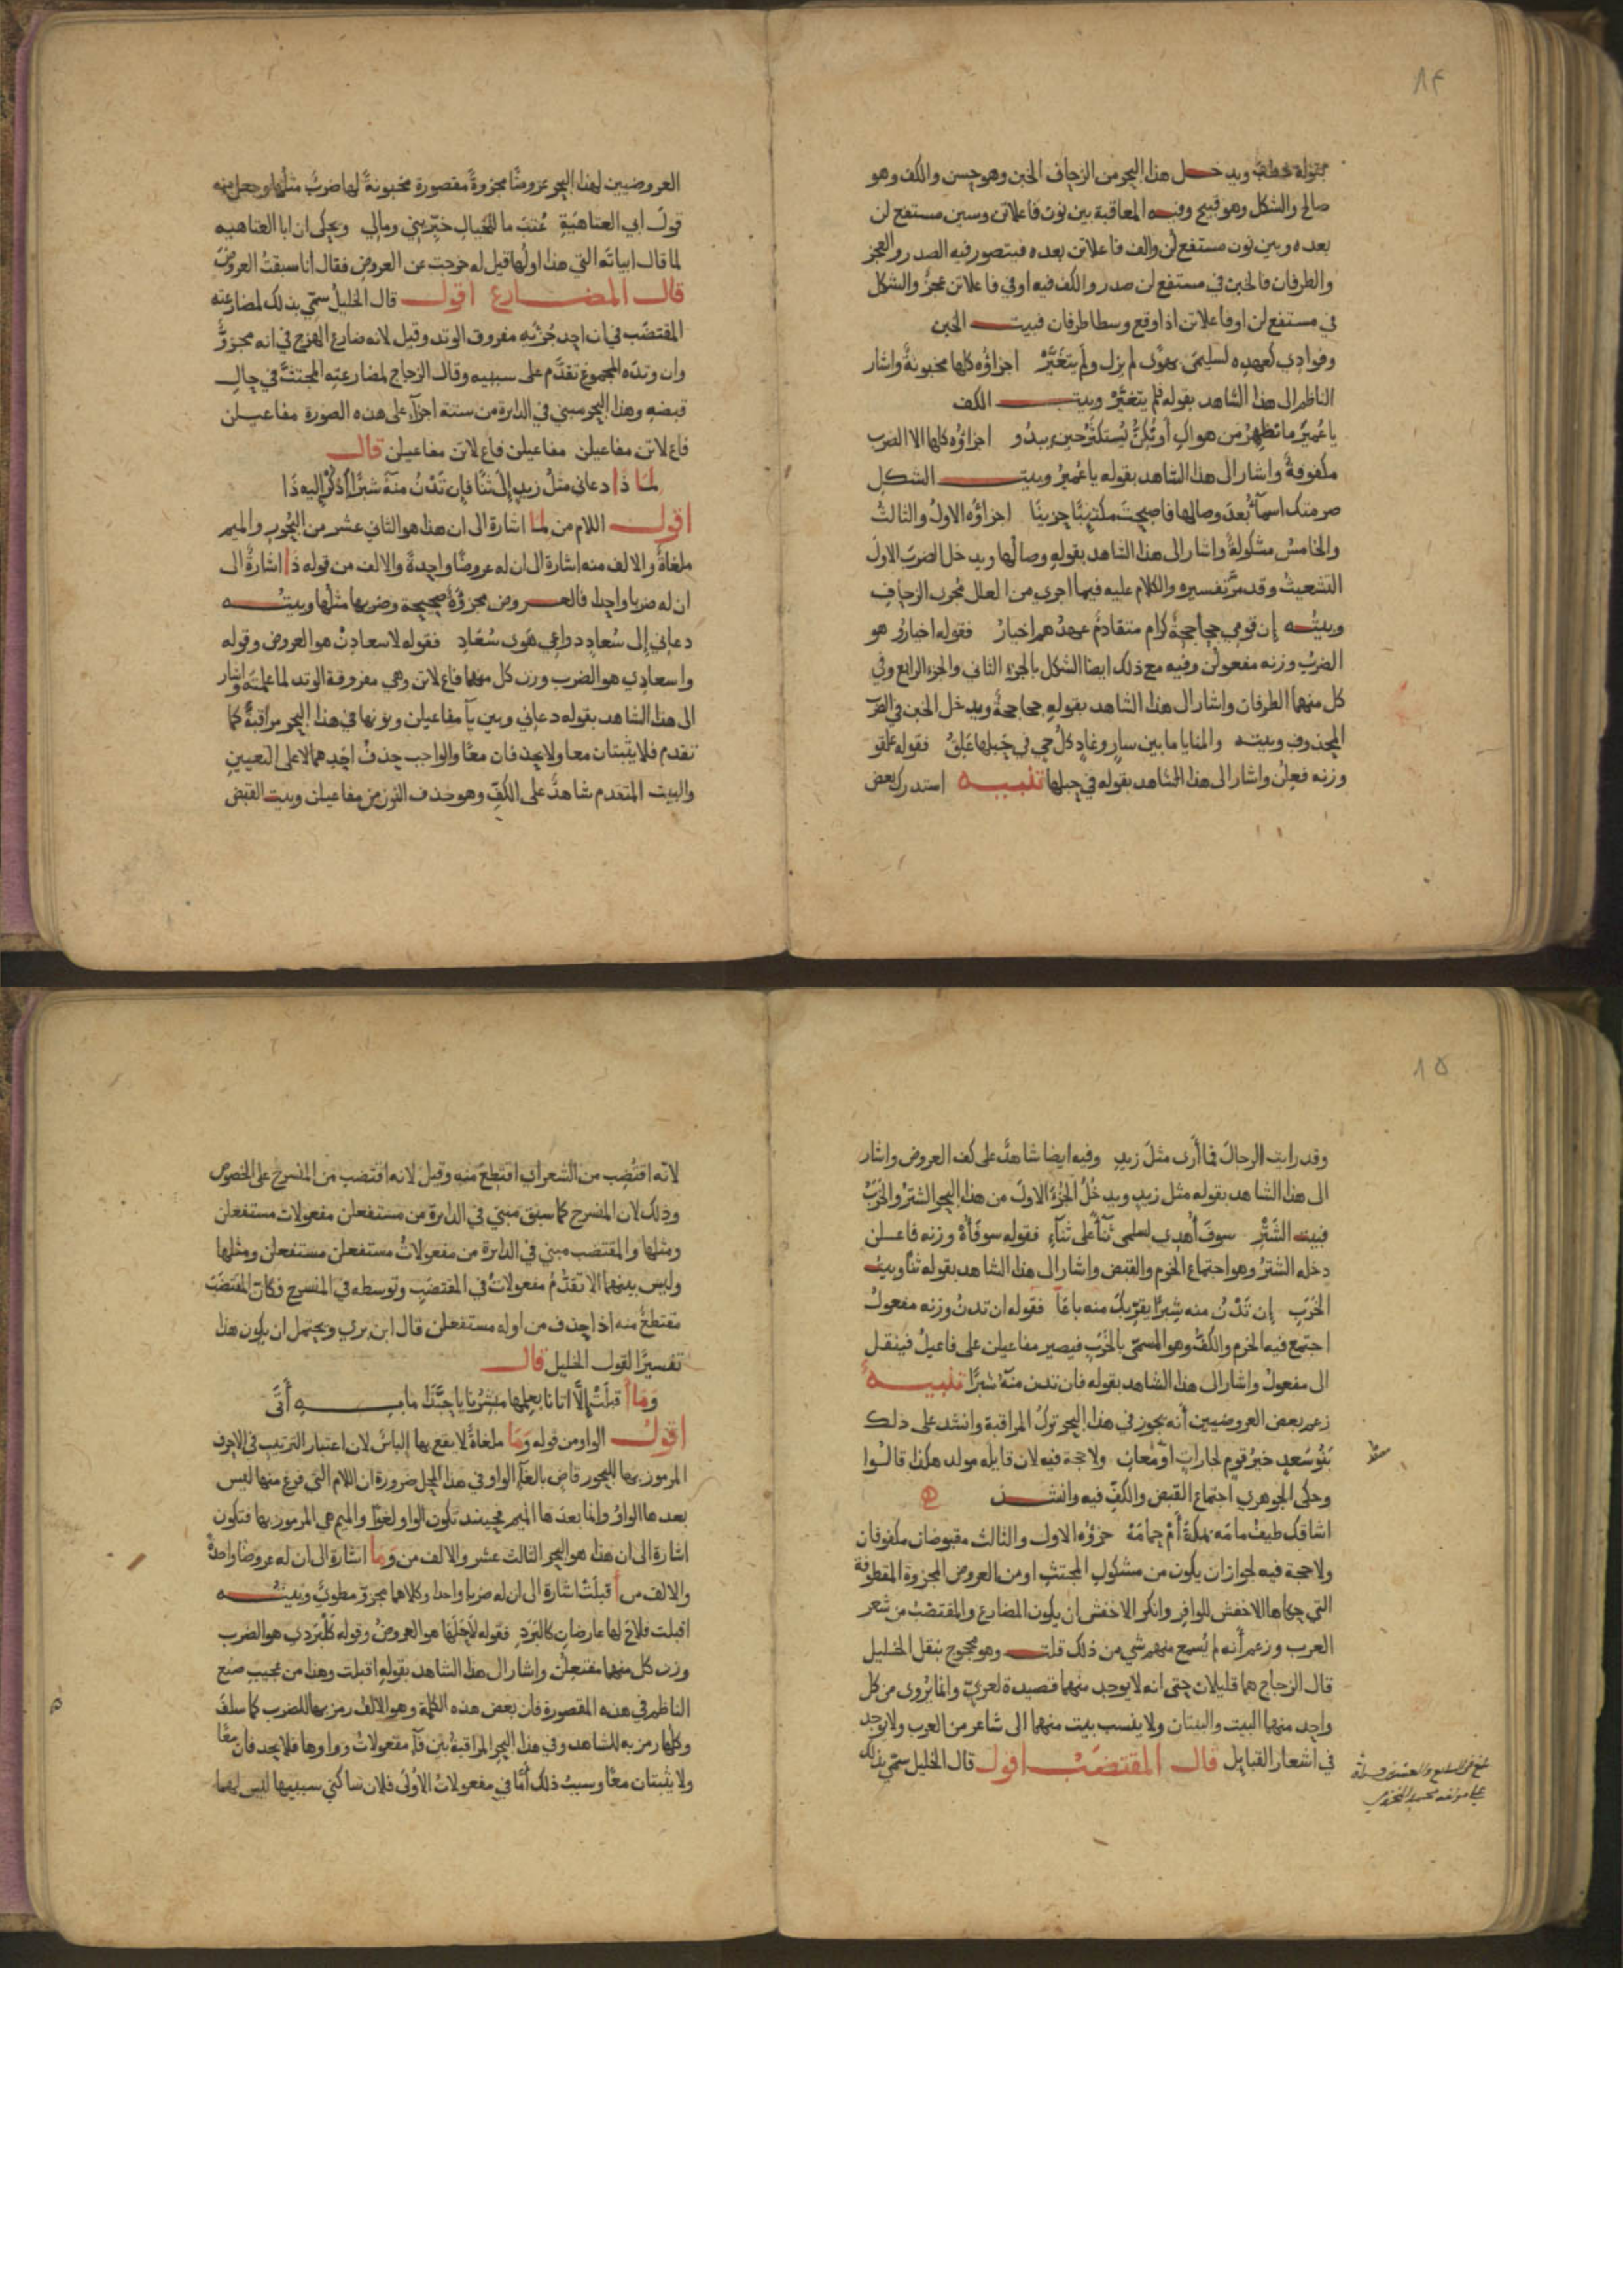 ٨٤
بقوله فخطبه ويدخل هذا البحر من الزحاف الخبن وهو حسن والكف وهو
صالح والشكل وهو قبيح وفيه المعاقبة بين نون فاعلاتن وسين مستفع لن
بعده وبين نون مستفع لن والف فاعلاتن بعده فيتصور فيه الصدر والعجز
والطرفان فالخبن في مستفع لن صدر والكف فيه او في فاعلاتن عجز والشكل
في مستفع لن او فاعلاتن اذا وقع وسطا طرفان فبيت الخبن
وفوادي كعهده لسليمى بهوًى لم يزل ولم يتغيّر اجزاؤه كلها مخبونة واشار
الناظم الى هذا الشاهد بقوله فلم يتغيّر وبيت الكف
يا عُمير ما تظهر من هواك او تكنّ يُستكثر حين يبدو اجزاؤه كلها الا الضرب
مكفوفة واشار الى هذا الشاهد بقوله يا عمير وبيت الشكل
صرمتك اسمآء بعد وصالها فاصبحت مكتئبًا حزينًا اجزاؤه الاول والثالث
والخامس مشكولة واشار الى هذا الشاهد بقوله وصالها ويدخل الضرب الاول
التشعيث وقد مرّ تفسيره والكلام عليه فيما اجري من العلل مجرى الزحاف
وبيته إن قومي جحاجحة كرام متقادم عهدهم اخيار فقوله اخيارو هو
الضرب وزنه مفعولن وفيه مع ذلك ايضا الشكل بالجزء الثاني والجزء الرابع وفي
كل منهما الطرفان واشار الى هذا الشاهد بقوله جحاجحة ويدخل الخبن في الضرب
المحذوف وبيته والمنايا ما بين سار وغاد كل حي في حبلها علق فقوله علقو
وزنه فعلن واشار الى هذا الشاهد بقوله في حبلها تنبيه استدرك بعض
العروضيين لهذا البحر عروضًا مجزوة مقصورة مخبونة لها ضرب مثلها وجعل منه
قول ابي العتاهية عُتب ما للخيال خبّريني ومالي ويحكى ان ابا العتاهيه
لما قال ابياته التي هذا اولها قيل له خرجت عن العروض فقال انا سبقت العروض
قال المضارع اقول قال الخليل سمّي بذلك لمضارعته
المقتضب في ان احد جزئيه مفروق الوتد وقيل لانه ضارع الهزج في انه مجزوّ
وان وتده المجموع تقدّم على سببيه وقال الزجاج لمضارعته المجتث في حال
قبضه وهذا البحر مبني في الدايرة من ستة اجزآء على هذه الصورة مفاعيلن
فاع لاتن مفاعيلن مفاعيلن فاع لاتن مفاعيلن قال
لما ذا دعاني مثل زيد إلى ثنًا فإن تَدْنُ منه شبرًا أذكر إليه ذا
اقول اللام من لما اشارة الى ان هذا هو الثاني عشر من البحور والميم
ملغاة والالف منه اشارة الى ان له عروضًا واحدة والالف من قوله ذا اشارة الى
ان له ضربا واحدا فالعروض مجزوّة صحيحة وضربها مثلها وبيته
دعاني إلى سُعاد دواعي هوى سُعَاد فقوله لاسعادن هو العروض وقوله
واسعادي هو الضرب وزن كل منهما فاع لاتن وهي مفروقة الوتد لما علمته واشار
الى هذا الشاهد بقوله دعاني وبين يآ مفاعيلن ونونها في هذا البحر مراقبة كما
تقدم فلا يثبتان معا ولا يحذفان معًا والواجب حذف احدهما لا على التعيين
والبيت المتقدم شاهد على الكفّ وهو حذف النون من مفاعيلن وبيت القبض
٨٥
وقد رايت الرجال فما أرى مثل زيد وفيه ايضا شاهد على كف العروض واشار
الى هذا الشاهد بقوله مثل زيد ويدخل الجزء الاول من هذا البحر الشتر والخرب
فبيت الشتر سوف أُهدي لسلمى ثنآء على ثنآء فقوله سوفأه وزنه فاعلن
دخله الشتر وهو اجتماع الخرم والقبض واشار الى هذا الشاهد بقوله ثنًا وبيت
الخرب إن تَدْنُ منه شِبرًا يقرّبك منه باعًا فقوله ان تدن وزنه مفعول
اجتمع فيه الخرم والكف وهو المسمّى بالخرب فيصير مفاعيلن على فاعيل فينقل
الى مفعول واشار الى هذا الشاهد بقوله فان تدن منه شبرًا تنبيه
زعم بعض العروضيين أنه يجوز في هذا البحر ترك المراقبة وانشد على ذلك
بَنُو سَعدٍ خيرُ قومٍ لجاراتٍ او مُعان ولا حجة فيه لان قايله مولد هكذا قالوا
وحكى الجوهري اجتماع القبض والكفّ فيه وانشد
اشاقك طيف مامَه بمكة أم حمامه جزؤه الاول والثالث مقبوضان مكفوفان
ولا حجة فيه لجواز ان يكون من مشكول المجتث او من العروض المجزوة المقطوفة
التي حكاها الاخفش للوافر وانكر الاخفش ان يكون المضارع والمقتضب من شعر
العرب وزعم أنه لم يُسمع منهم شي من ذلك قلت وهو محجوج بنقل الخليل
قال الزجاج هما قليلان حتى انه لا يوجد منهما قصيدة لعربيّ وانما يُروى من كل
واحد منهما البيت والبيتان ولا ينسب بيت منهما الى شاعر من العرب ولا يوجد
في اشعار القبايل قال المقتضب اقول قال الخليل سمّي بذلك
لانّه اقتُضب من الشعر اي اقتطع منه وقيل لانه اقتضب من المنسرح على الخصوص
وذلك لان المنسرح كما سبق مبني في الدايرة من مستفعلن مفعولات مستفعلن
ومثلها والمقتضب مبني في الدايرة من مفعولات مستفعلن مستفعلن ومثلها
وليس بينهما الا تقدّم مفعولات في المقتضب وتوسطه في المنسرح فكان المقتضب
مقتطع منه اذا حذف من اوله مستفعلن قال ابن بري ويحتمل ان يكون هذا
تفسيرًا لقول الخليل قال
وَمَا أقبلَتْ إلّا اتانا بعلمها مبشرنا يا حبّذا ما به أتى
اقول الواو من قوله وَمَا ملغاة لا يقع بها إلباس لان اعتبار الترتيب في الاحرف
المرموز بها للبحور قاض بالغآء الواو في هذا المحل ضرورة ان اللام التي فرغ منها ليس
بعدها الواو وانما بعدها الميم فحينئذ تكون الواو لغوًا والميم هي المرموز بها فتكون
اشارة الى ان هذا هو البحر الثالث عشر والالف من وَمَا اشارة الى ان له عروضًا واحدة
والالف من أقبلَتْ اشارة الى ان له ضربا واحدا وكلاهما مجزوّ مطويّ وبيته
اقبلت فلاح لها عارضان كالبَرَدِ فقوله لاح لها هو العروض وقوله كلبردي هو الضرب
وزن كل منهما مفتعلن واشار الى هذا الشاهد بقوله اقبلت وهذا من عجيب صنع
الناظم في هذه المقصورة فان بعض هذه الكلمة وهو الالف رمز بها للضرب كما سلف
وكلها رمز به للشاهد وفي هذا البحر المراقبة بين فآء مفعولات وواوها فلا يحذفان معًا
ولا يثبتان معًا وسبب ذلك أمّا في مفعولات الاولى فلان ساكني سببيها ليس لهما